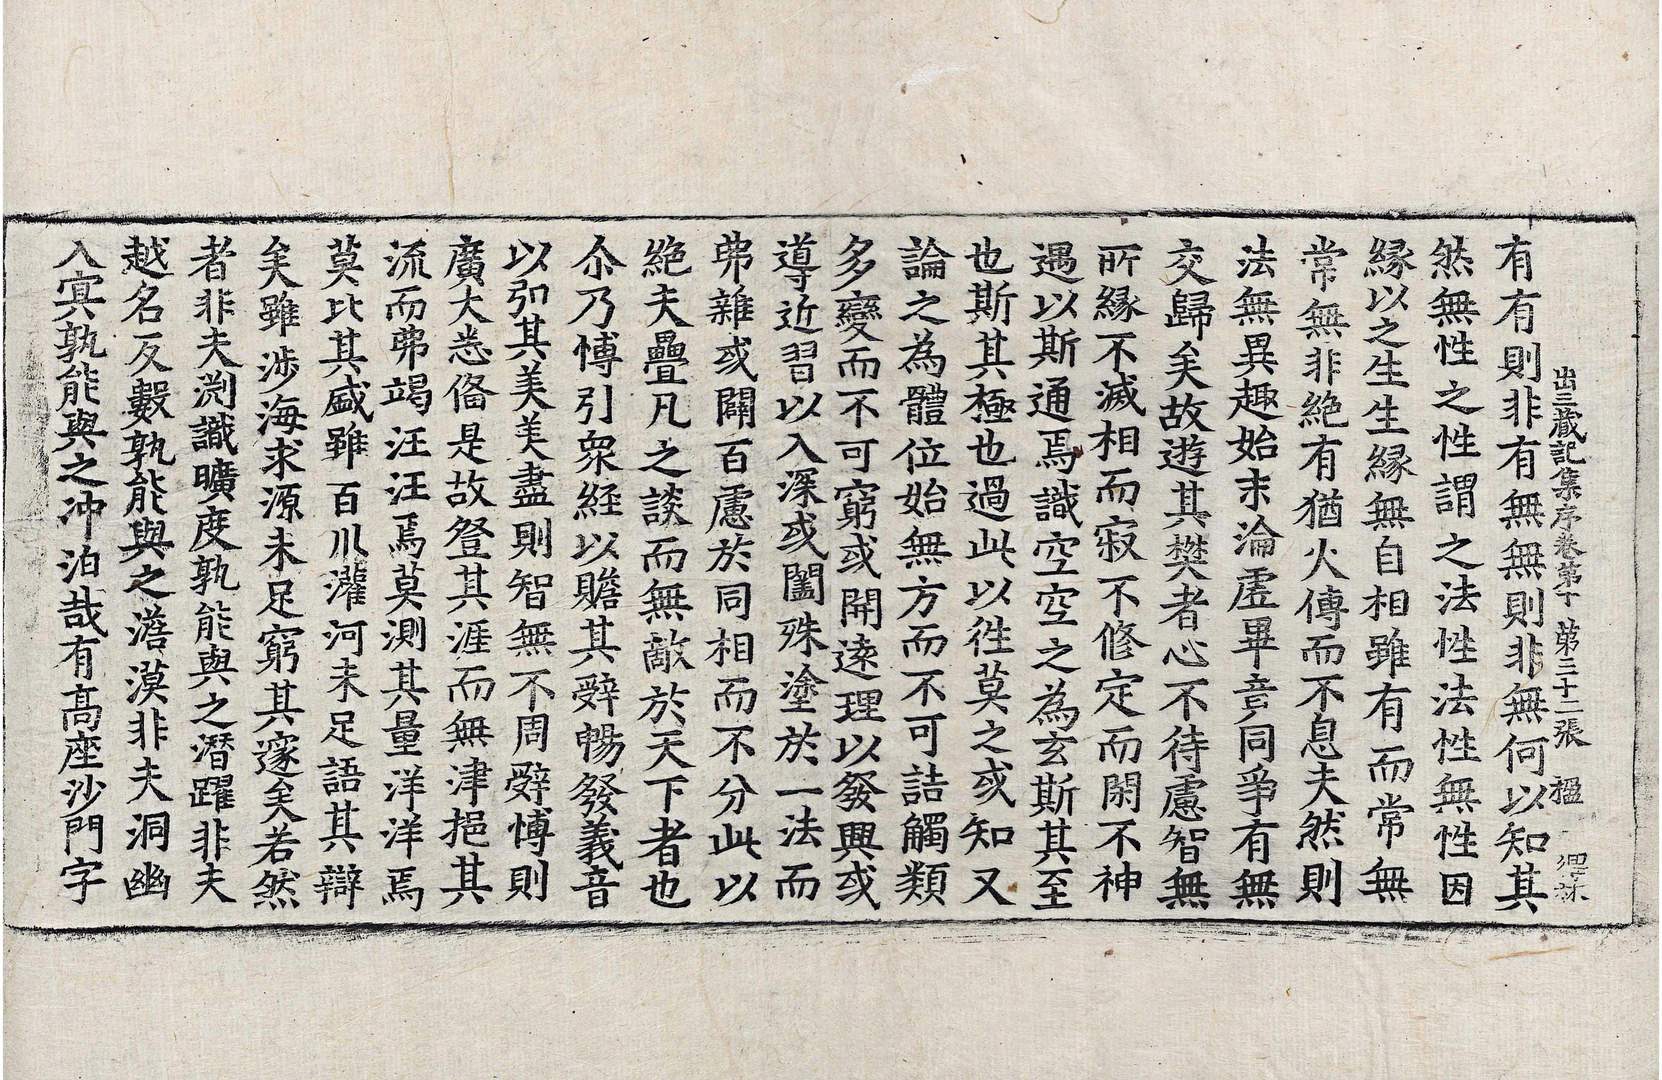 出三藏記集序卷第十 第三十二張 楹
有有則非有無無則非無何以知其
然無性之性謂之法性法性無性因
緣以之生生緣無自相雖有而常無
常無非絶有猶火傳而不息夫然則
法無異趣始末淪虛畢竟同爭有無
交歸矣故遊其樊者心不待慮智無
所緣不滅相而寂不修定而閑不神
遇以斯通焉識空空之為玄斯其至
也斯其極也過此以徃莫之或知又
論之為體位始無方而不可詰觸類
多變而不可窮或開遠理以發興或
導近習以入深或闔殊塗於一法而
弗雜或闢百慮於同相而不分此以
絶夫疊凡之談而無敵於天下者也
尒乃愽引衆経以贍其辤暢發義音
以弘其美美盡則智無不周辤愽則
廣大悉俻是故登其涯而無津挹其
流而弗竭汪汪焉莫測其量洋洋焉
莫比其盛雖百川灌河未足語其辯
矣雖涉海求源未足窮其邃矣若然
者非夫渕識曠度孰能與之潜躍非夫
越名反數孰能與之澹漠非夫洞幽
入㝠孰能與之沖泊哉有髙座沙門字